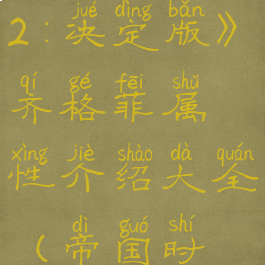 jué dìng bǎn
2:决定版》
qí gé fēi shǔ
齐格菲属
xìng jiè shào dà quán
性介绍大全
dì guó shí
(帝国时